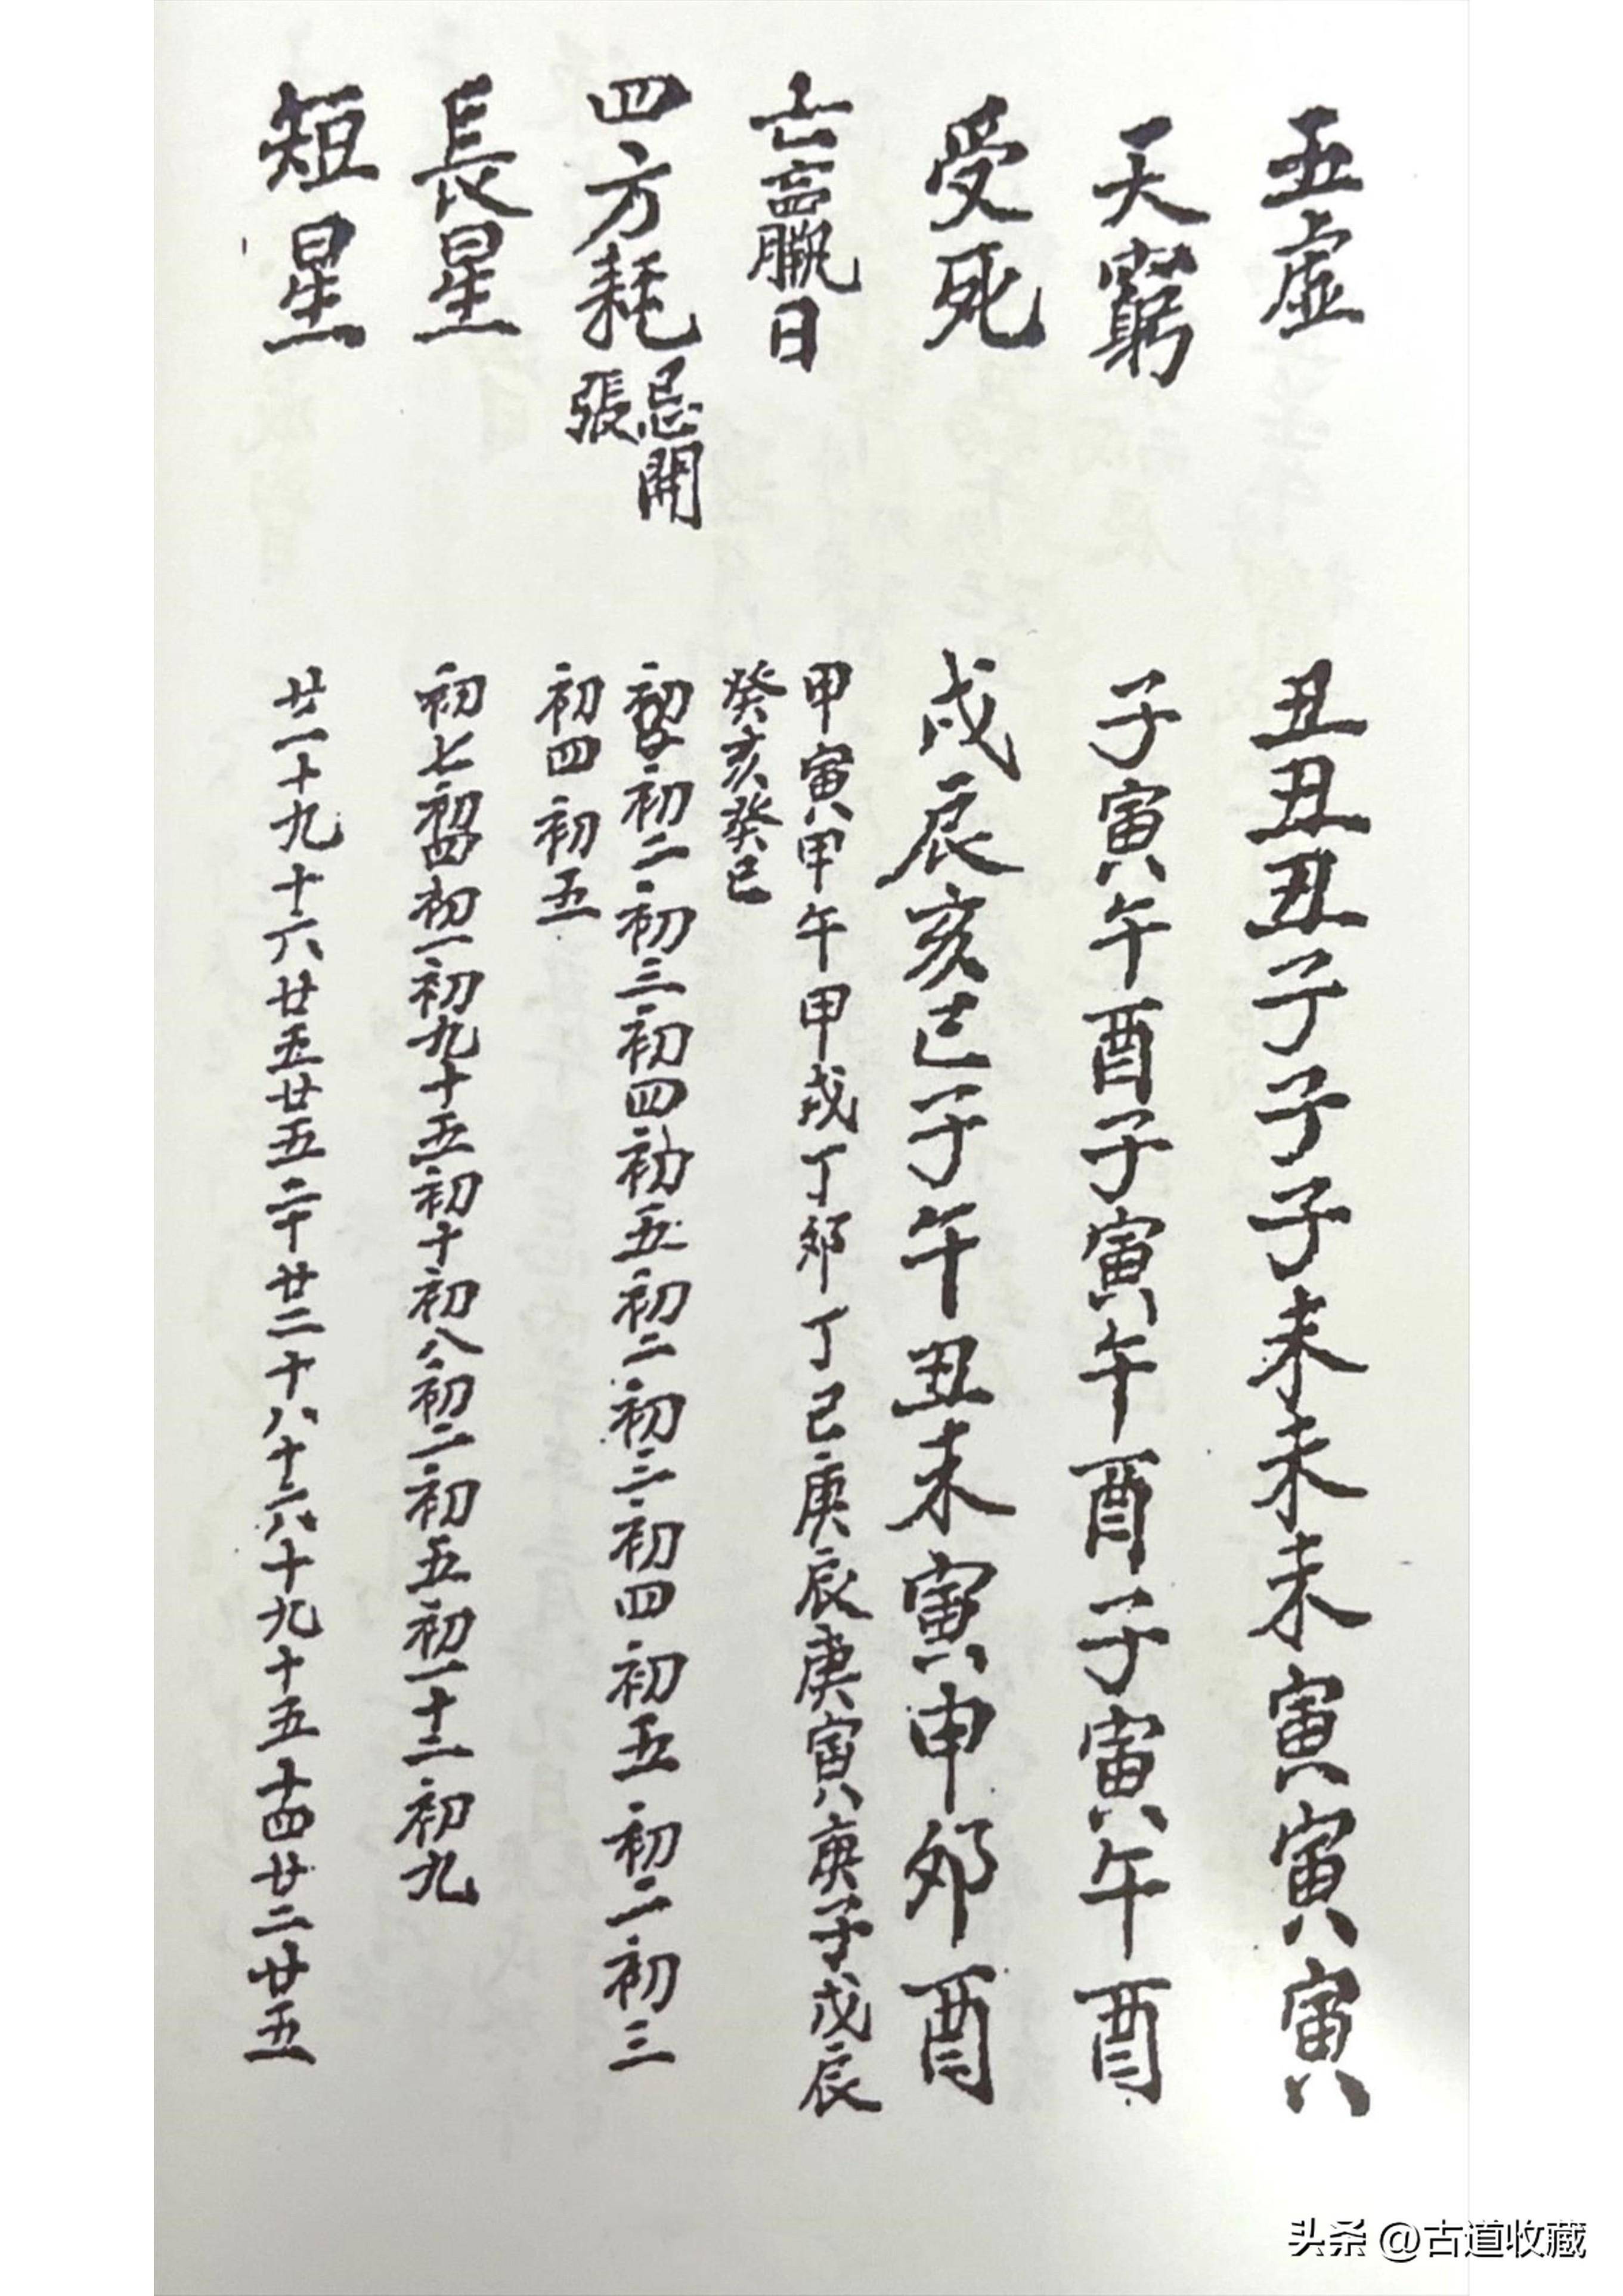 五虛 丑丑丑子子子未未未寅寅寅
天窮 子寅午酉子寅午酉子寅午酉
受死 戌辰亥巳子午丑未寅申夘酉
亡嬴日 甲寅甲午甲戌丁夘丁巳庚辰庚寅庚子戊辰
癸亥癸巳
四方耗 忌開張 初二初三初四初五初二初三初四初五初二初三
初四初五
長星 初七初四初一初九十五初十初八初二初五初一十二初九
短星 廿一十九十六廿五廿五二十廿二十八十六十九十五十四廿二廿五
头条 @古道收藏